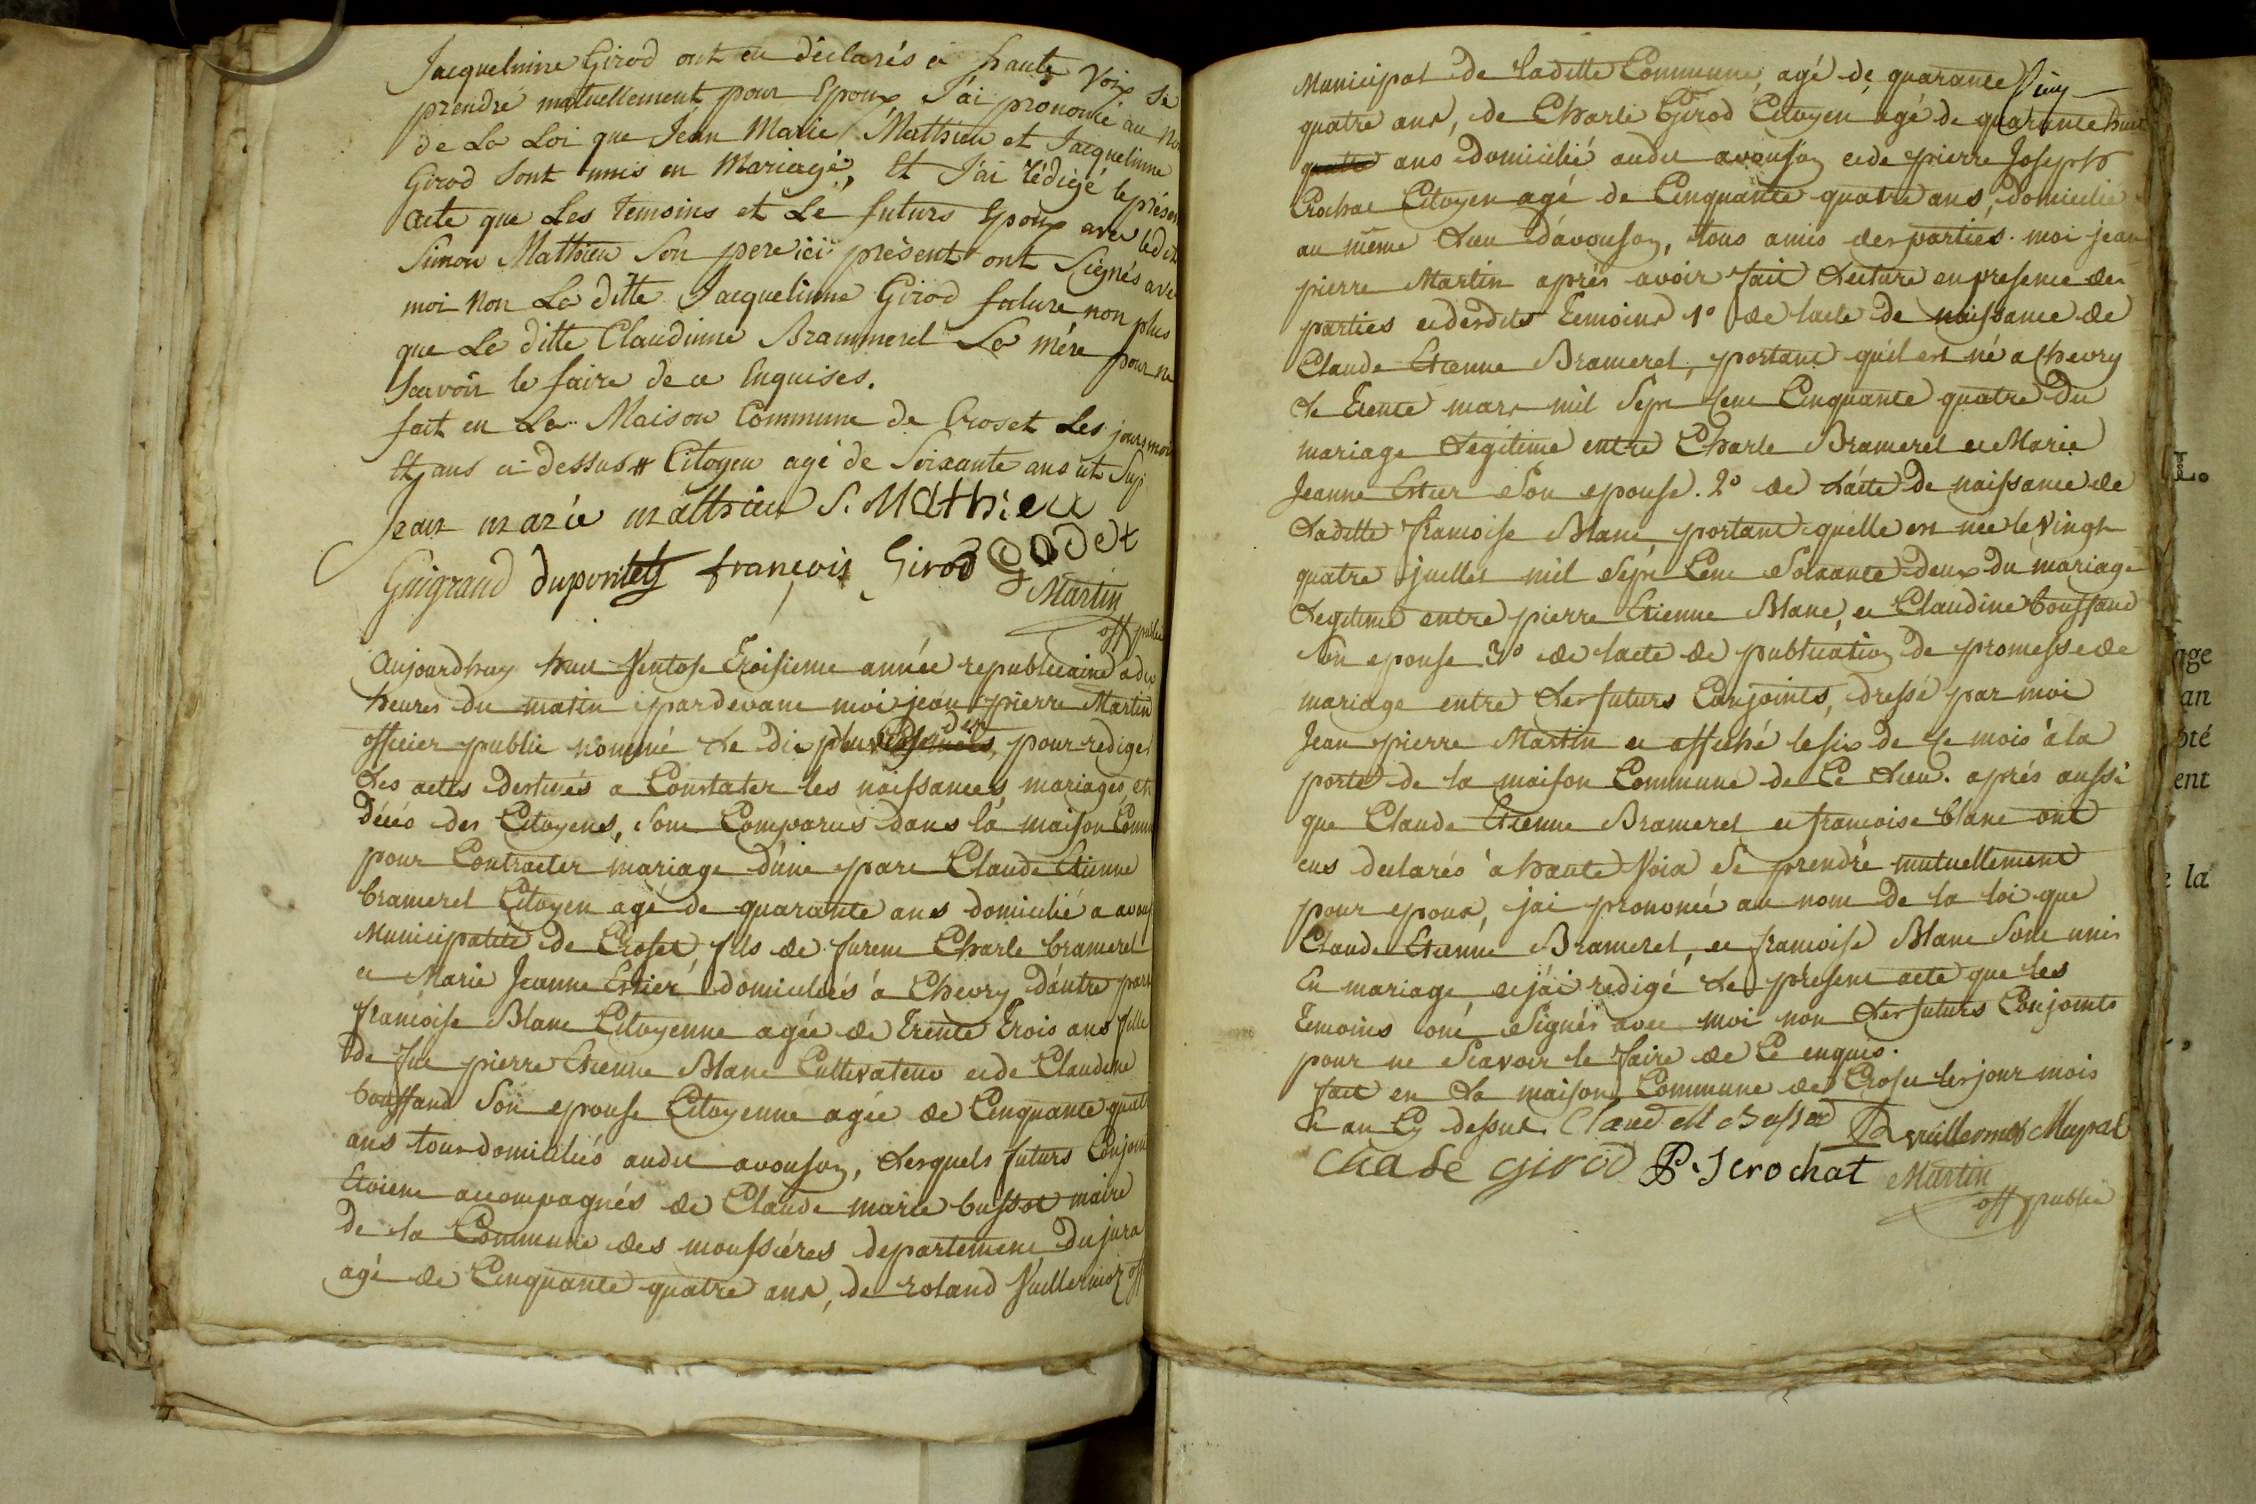 Jacquelinne Girod ont eu déclarés à haute voix se
prendre mutuellement pour Epoux, J'ai prononcé au no
de La Loi que Jean Marie Mathieu et Jacquelinne
Girod sont unis en Mariage, Et J'ai rédigé le présen
acte que Les temoins et Le futurs Epoux avec ledit
Simon Mathieu Son pere ici présent ont Signés avec
moi non La ditte Jacquelinne Girod future non plus
que La ditte Claudinne Brammerel La mère pour ne
Scavoir le faire de ce Enquises.
fait en La Maison Commune de Croset Les jour mois
Et ans ci dessus # Citoyen agé de Soixante ans ut Sup
Jean marie mathieu S. Mathieu
Guigrand dupontets françois Girod Godet
Martin
off public
Aujourdhuy huit Ventose Troisieme année republicaine a dix
heures du matin pardevant moi jean pierre Martin
officier public nommé Le dix pluviose, pour rediger
Les actes destinés a Constater les naissances, mariages, et
décés des Citoyens, Sont Comparus dans la maison Comm
pour Contracter mariage d'une part Claude Etienne
brameret Citoyen agé de quarante ans domicilié a avou
Municipalité de Croset fils de furent Charle brameret
et Marie Jeanne Estier domiciliés à Chevry d'autre part
françoise Blanc Citoyenne agée de Trente Trois ans fille
de feu pierre Etienne Blanc Cultivateur et de Claudine
bouffand Son epouse Citoyenne agée de Cinquante quatr
ans tous domiciliés audit avouson, Lesquels futurs Conjoin
Etoient accompagnés de Claude marie bussod maire
de la Commune des moussiéres departement du jura
agé de Cinquante quatre ans, de roland Vuillermoz off
Municipal de ladite Commune, agé de quarante Cinq
quatre ans, de Charle Girod Citoyen agé de quarante huit
quatre ans domicilié audit avouson et de pierre Joseph
Crochat Citoyen agé de Cinquante quatre ans, domicilié
au même Lieu d'avouson, tous amis des parties. moi jean
pierre Martin après avoir fait Lecture en presence des
parties et desdits Temoins 1° de lacte de naissance de
Claude Etienne Brameret, portant qu'il est né a Chevry
Le Trente mars mil Sept Cent Cinquante quatre du
mariage Legitime entre Charle Brameret et Marie
Jeanne Estier Son epouse. 2° de Lacte de naissance de
Ladite françoise Blanc, portant quelle est née le Vingt
quatre juillet mil Sept Cent Soixante deux du mariage
Legitime entre pierre Etienne Blanc, et Claudine bouffand
Son epouse 3° de lacte de publication de promesse de
mariage entre Les futurs Conjoints, dressé par moi
Jean pierre Martin et affiché le six de Ce mois à la
porte de la maison Commune de Ce Lieu. aprés aussi
que Claude Etienne Brameret et françoise blanc ont
eus declarés à haute Voix Se prendre mutuellement
pour epoux, jai prononcé au nom de la loi que
Claude Etienne Brameret, et françoise Blanc Sont unis
En mariage et j'ai redigé Le present acte que les
Temoins ont Signés avec moi non Les futurs Conjoints
pour ne Scavoir le faire de Ce enquis.
fait en La maison Commune de Croset les jour mois
Et an Cy dessus. Claude M Bussod R vuillermoz Mupal
Chale girod P. J crochat Martin
off public
L.
age
an
pté
ent
e la